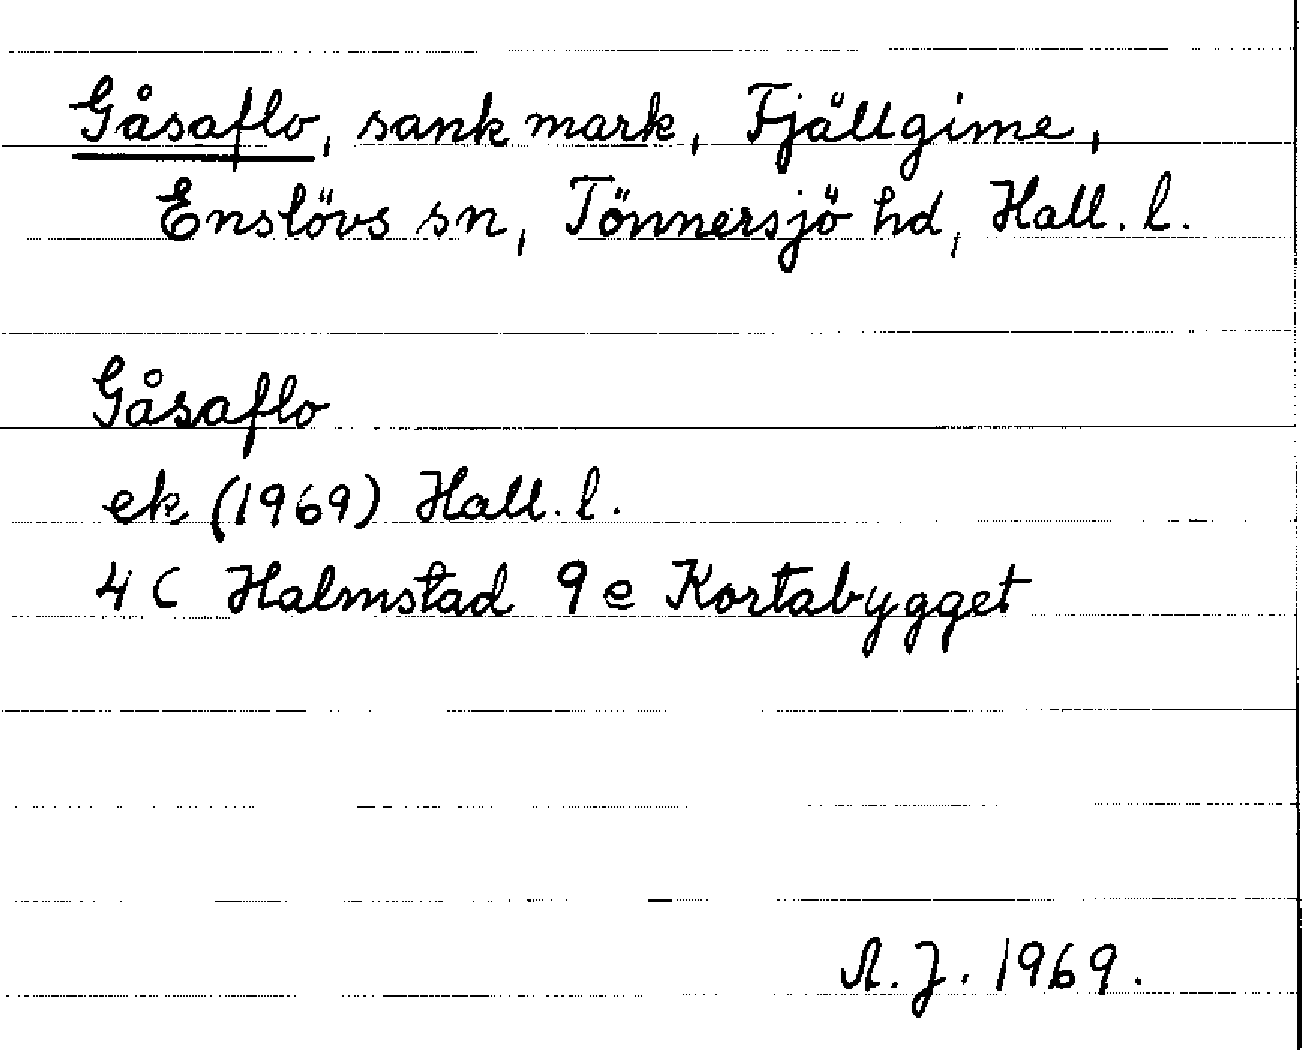 Gåsaflo, sank mark, Fjällgime,
Enslövs sn, Tönnersjö hd, Hall. l.
Gåsaflo
ek (1969) Hall. l.
4 C Halmstad 9 e Kortabygget
A. J. 1969.